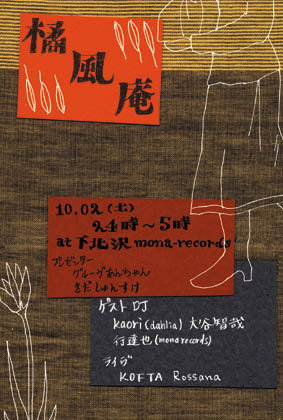 橘風庵
10.02(土)
24時〜5時
at 下北沢 mona-records
プレゼンター
グルーヴあんちゃん
さだしゅんすけ
ゲスト DJ
kaori(dahlia) 大谷智哉
行達也(mona records)
ライヴ
KOFTA Rossana